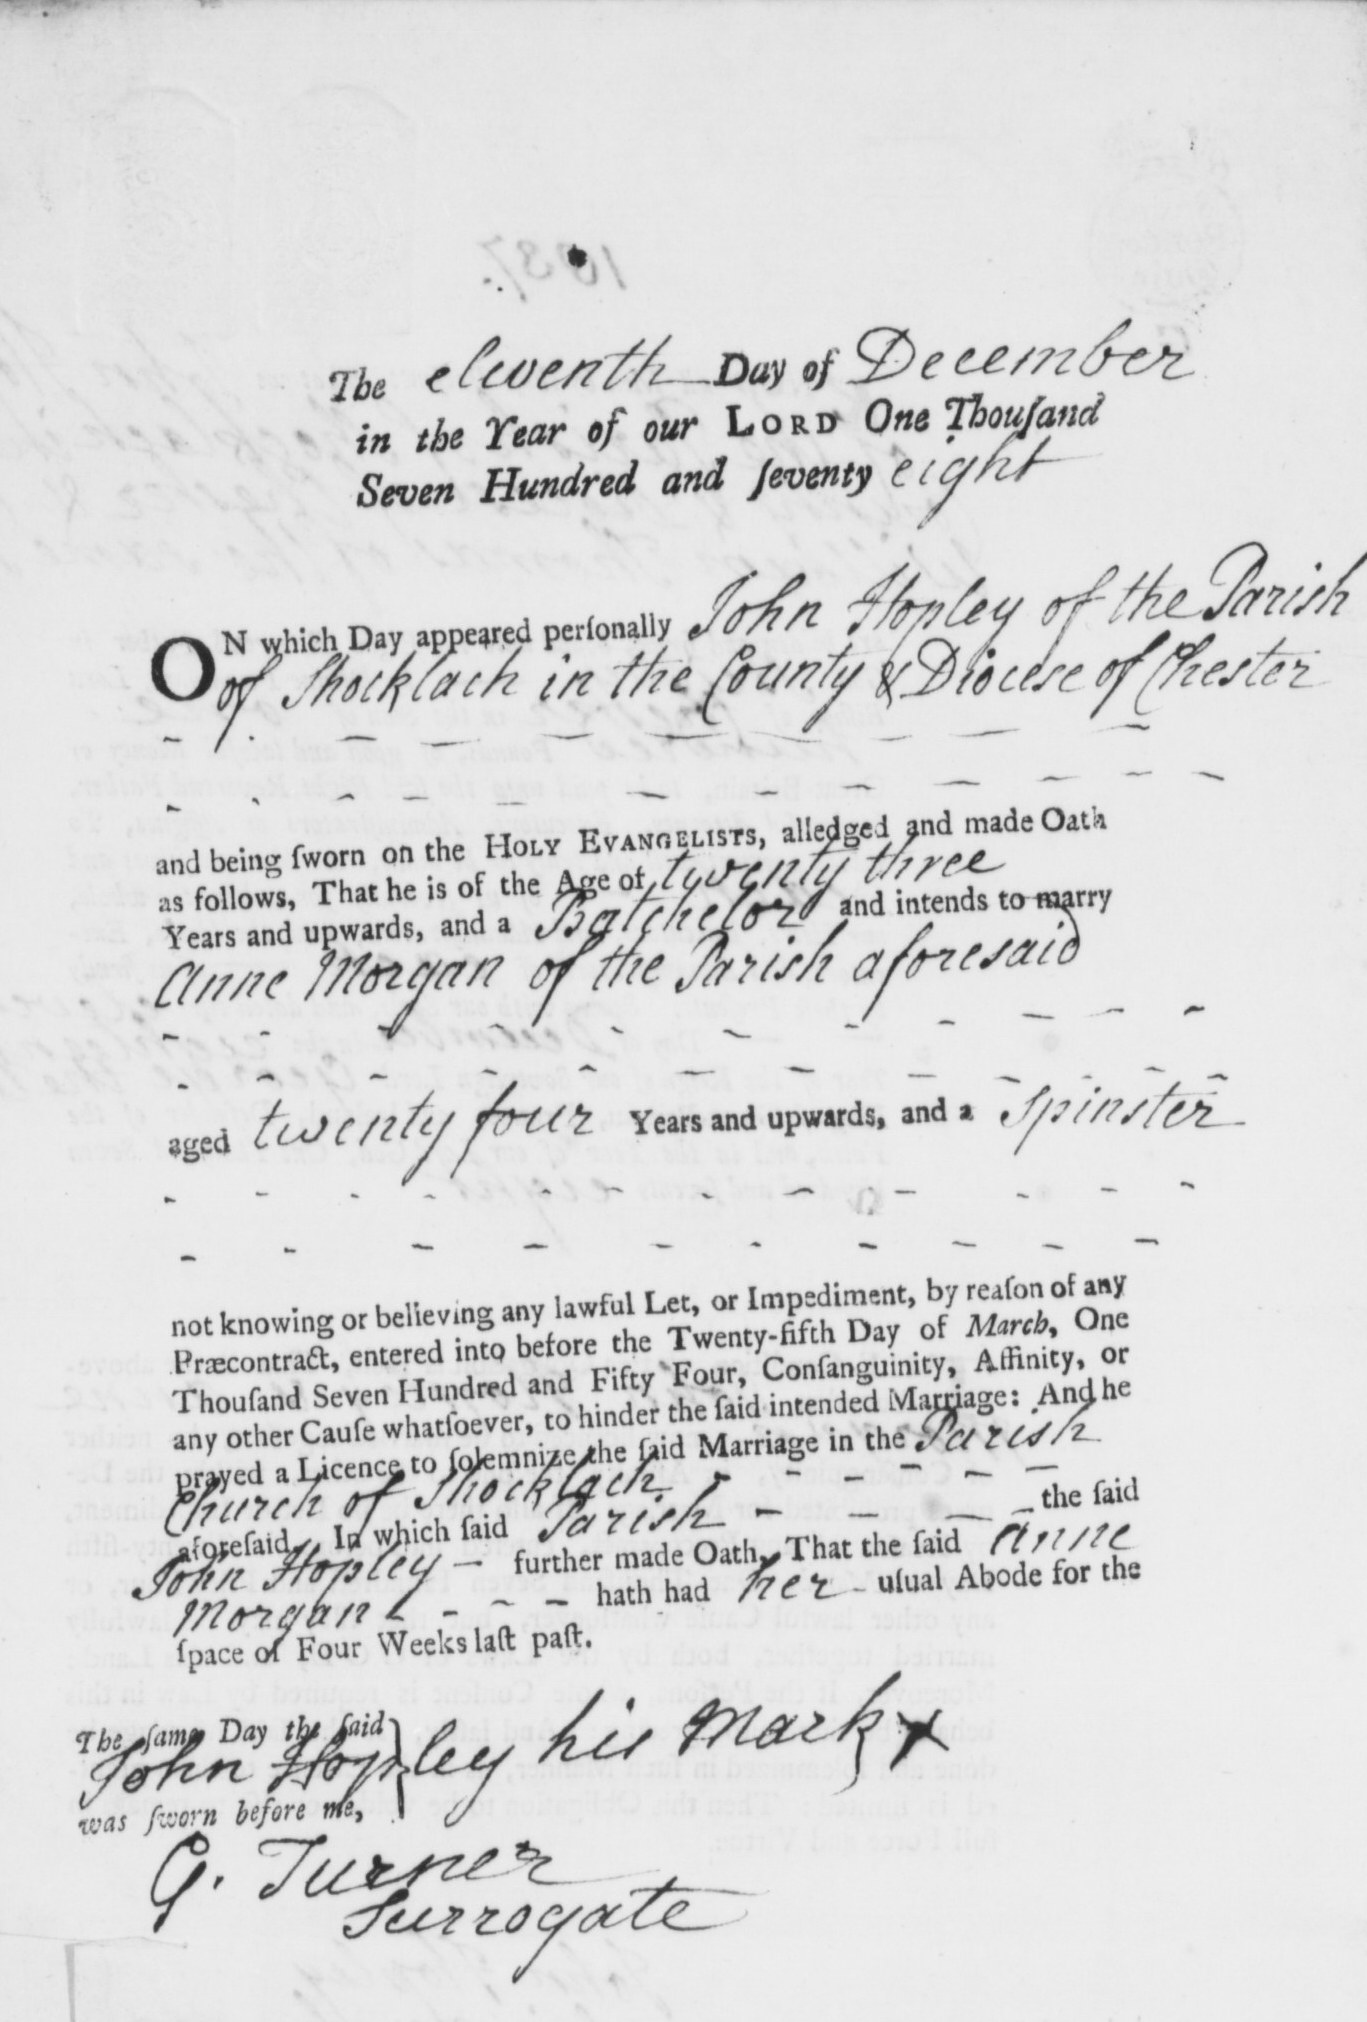 The eleventh Day of December
in the Year of our LORD One Thouſand
Seven Hundred and ſeventy eight
ON which Day appeared perſonally John Hopley of the Parish
of Shocklach in the County & Diocese of Chester
and being ſworn on the HOLY EVANGELISTS, alledged and made Oath
as follows, That he is of the Age of twenty three
Years and upwards, and a Batchelor and intends to marry
Anne Morgan of the Parish aforesaid
aged twenty four Years and upwards, and a Spinster
not knowing or believing any lawful Let, or Impediment, by reaſon of any
Præcontract, entered into before the Twenty-fifth Day of March, One
Thouſand Seven Hundred and Fifty Four, Conſanguinity, Affinity, or
any other Cauſe whatſoever, to hinder the ſaid intended Marriage: And he
prayed a Licence to ſolemnize the ſaid Marriage in the Parish
Church of Shocklach
aforeſaid, In which ſaid Parish the ſaid
John Hopley further made Oath, That the ſaid Anne
Morgan hath had her uſual Abode for the
ſpace of Four Weeks laſt paſt.
The ſame Day the ſaid
John Hopley his Mark X
was ſworn before me,
G. Turner
Surrogate